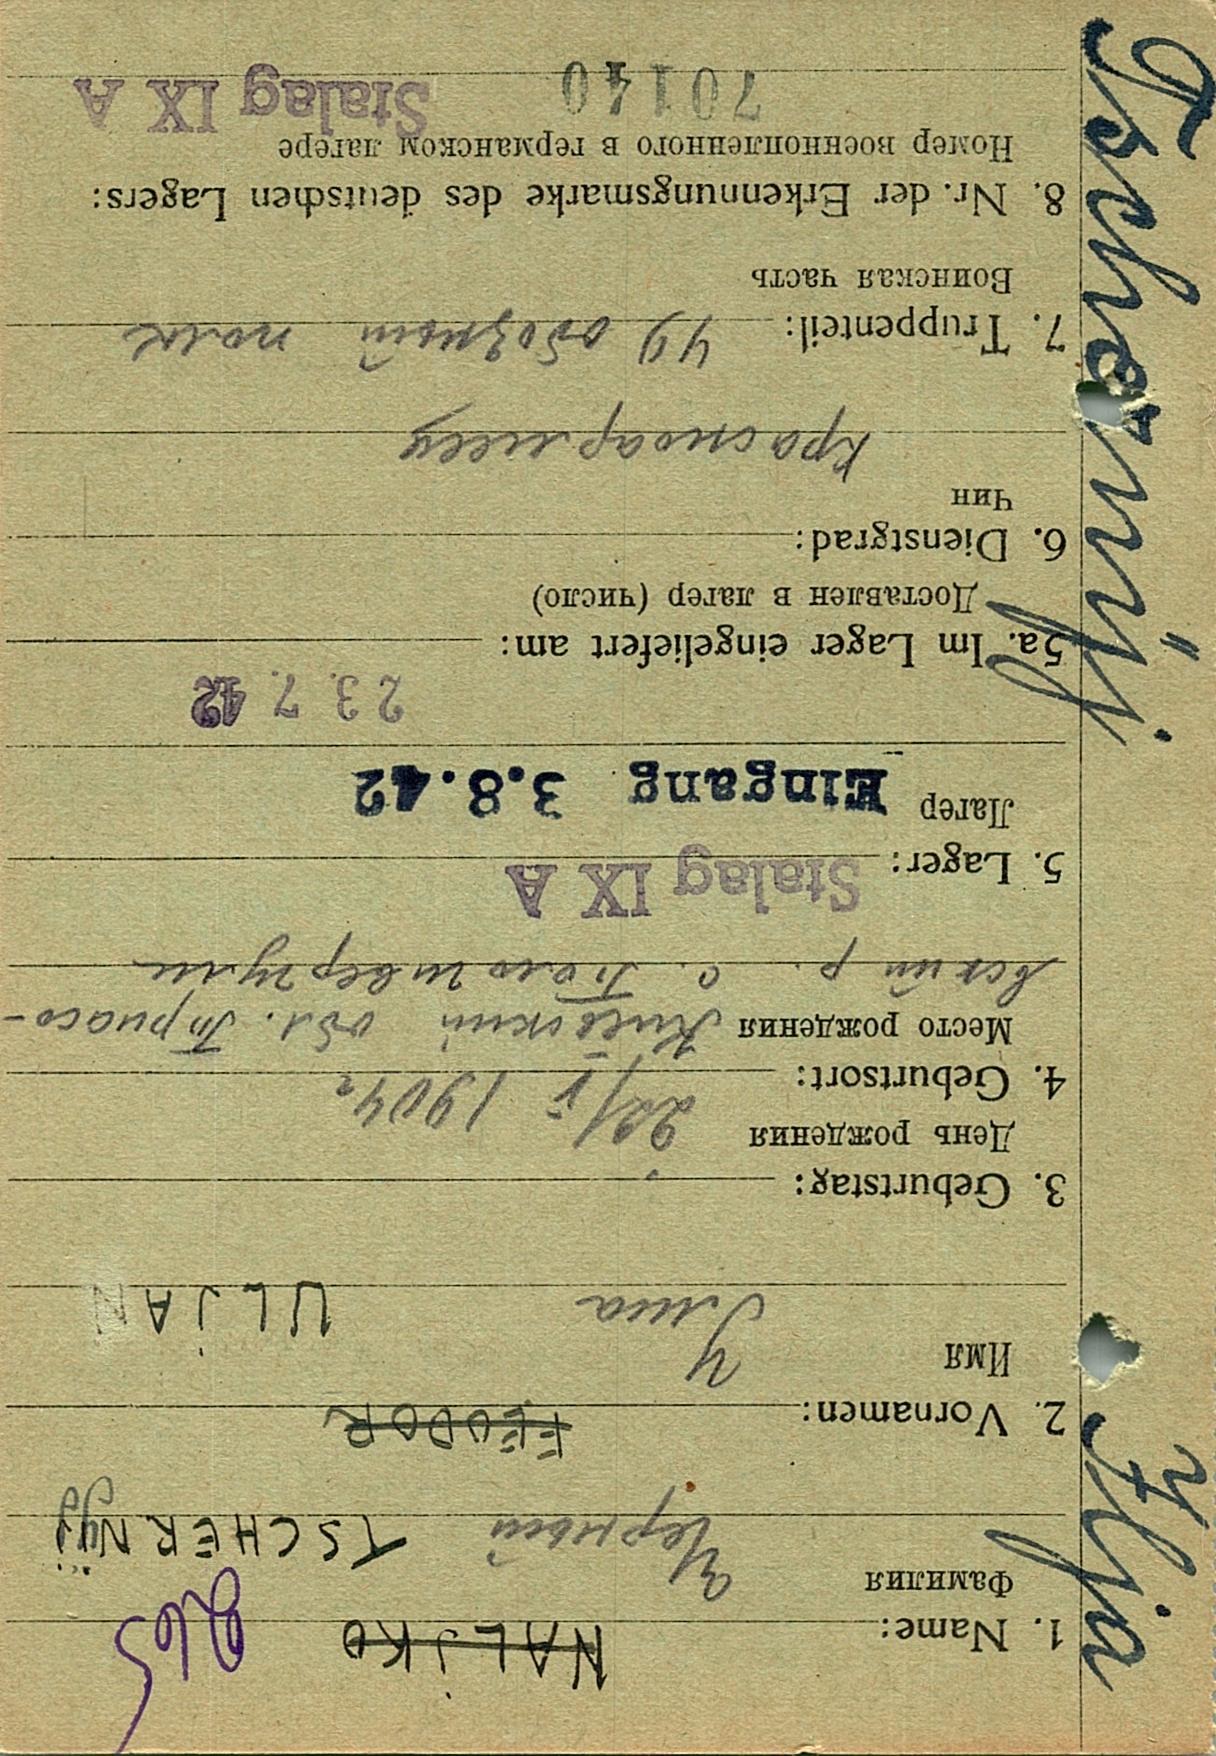 Tschernÿj Ilja
1. Name: NALJKO
Фамилия Черный TSCHERNYJ
2. Vornamen: FEUDOR
Имя Илиа ULJAN
3. Geburtstag:
День рождения 22/V 1904г
4. Geburtsort:
Место рождения Киевский обл. Тарасо-
вский р. с.
5. Lager: Stalag IX A
Лагер Eingang 3.8.42
23. 7. 42
5a. Im Lager eingeliefert am:
Доставлен в лагер (число)
6. Dienstgrad:
Чин
красноармеец
7. Truppenteil: 49 обозный полк
Воинская часть
8. Nr. der Erkennungsmarke des deutschen Lagers:
Номер военнопленного в германском лагере
70140 Stalag IX A